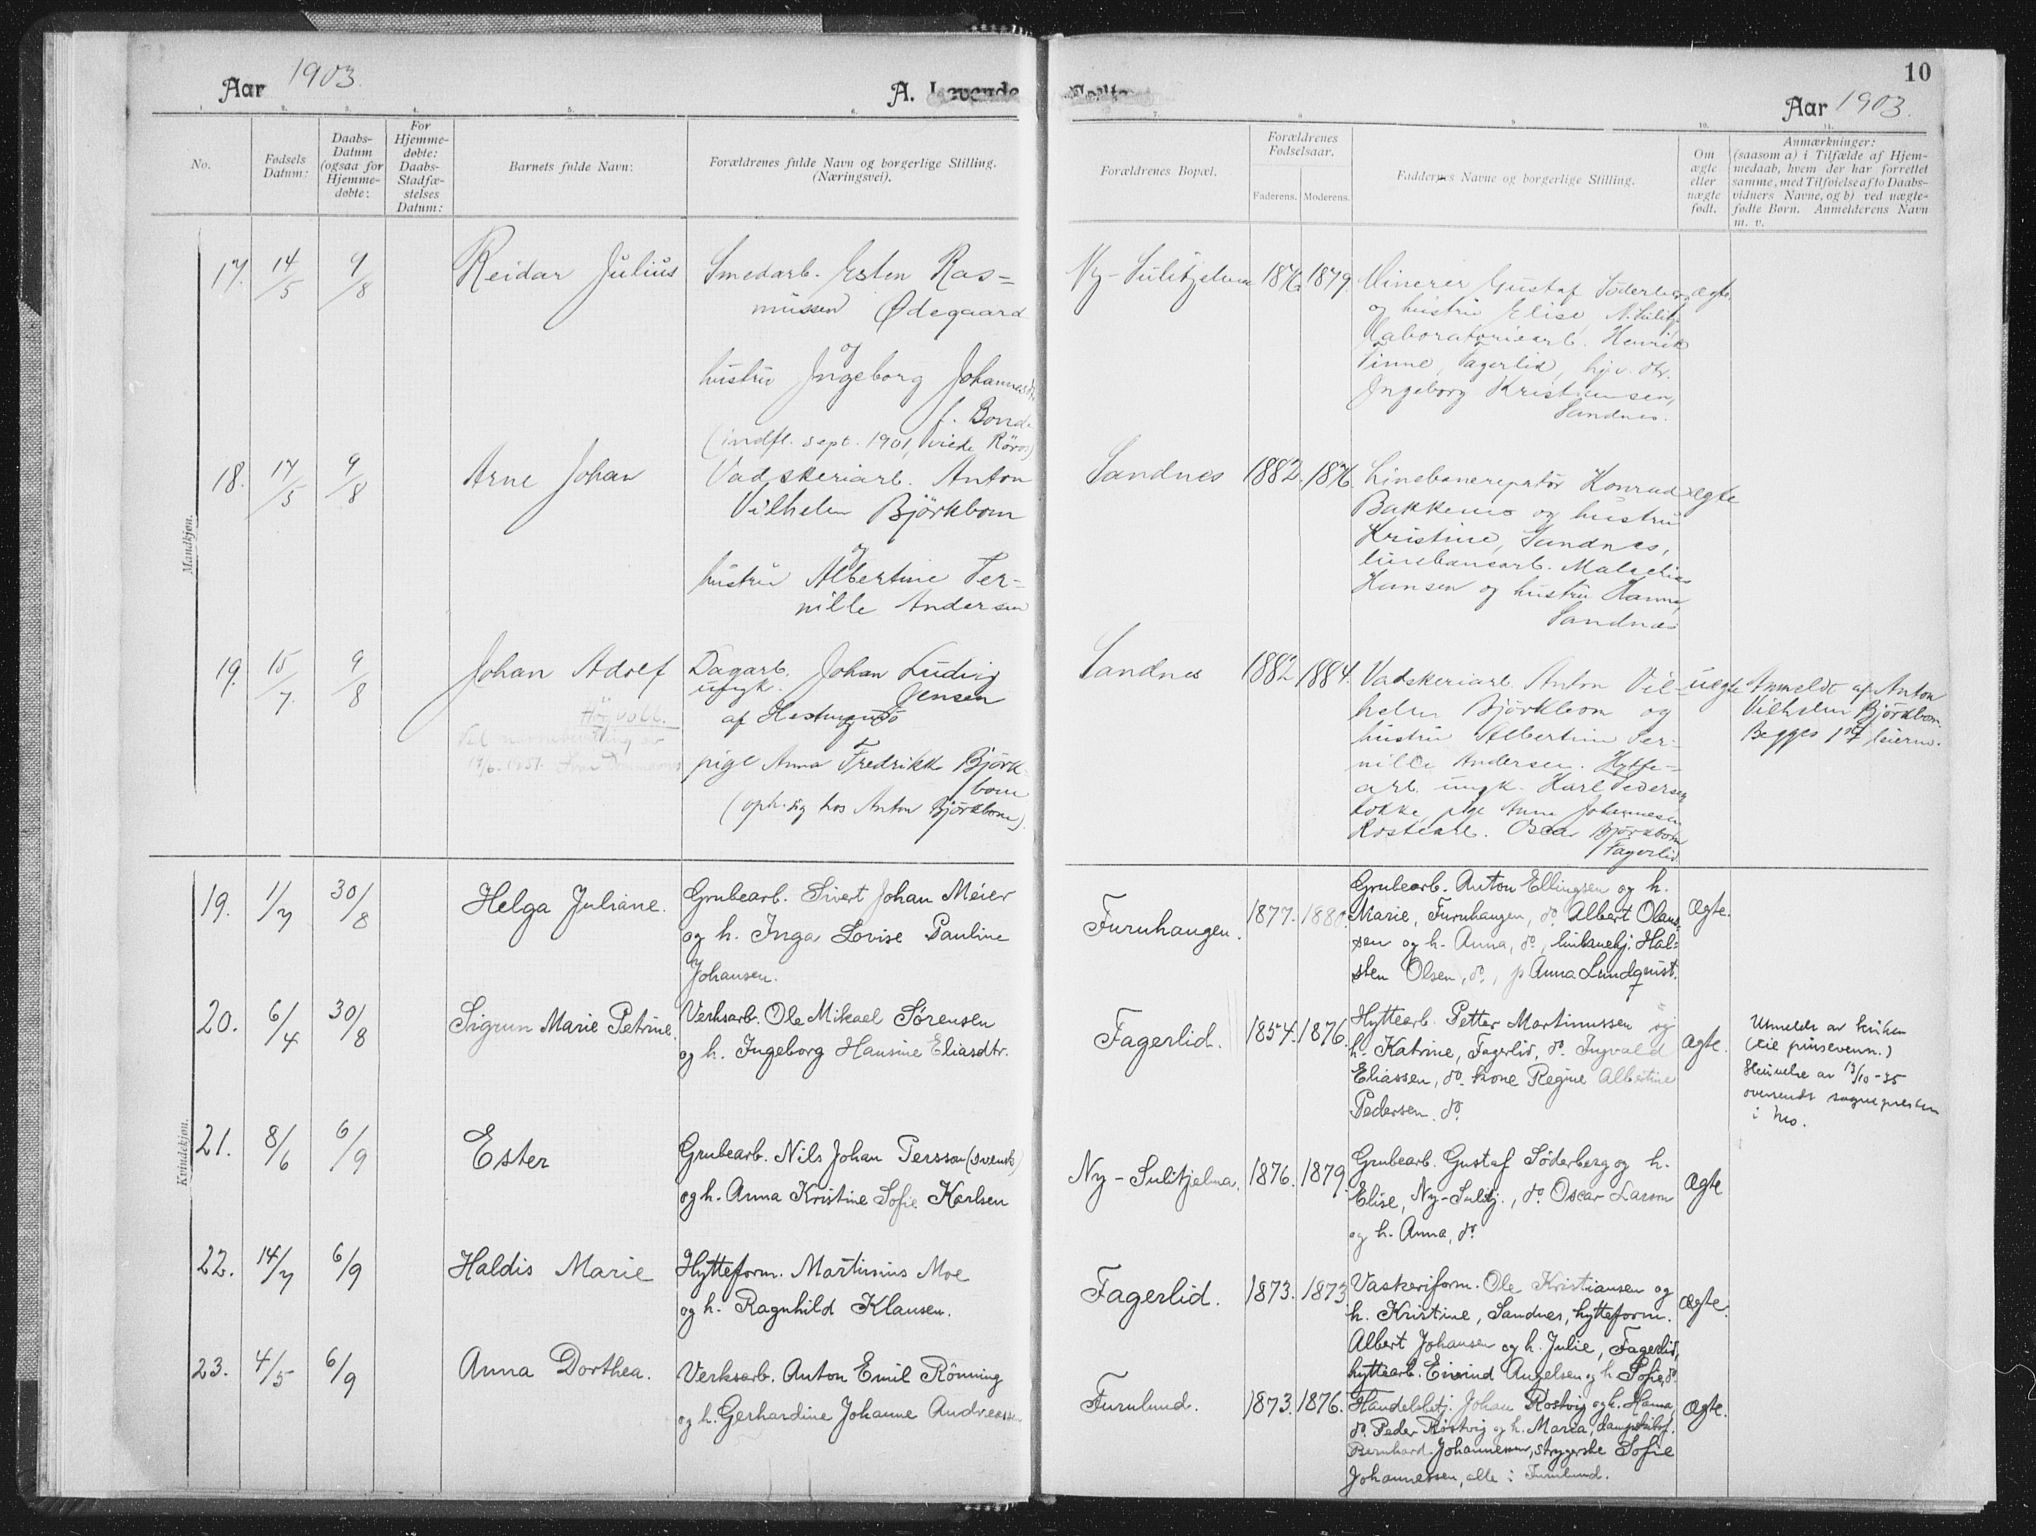 Aar 1903.
A. Levende
Fødte
10
Aar 1903.
1. 2. 3. 4. 5. 6. 7. 8. 9. 10. 11.
No.
Fødsels
Datum:
Daabs-
Datum
(ogsaa for
Hjemme-
døbte:
For
Hjemme-
døbte:
Daabs-
Stadfæ-
stelses
Datum:
Barnets fulde Navn:
Forældrenes fulde Navn og borgerlige Stilling.
(Næringsvei).
Forældrenes Bopæl.
Forældrenes
Fødselsaar.
Faderens. Moderens.
Faddernes Navne og borgerlige Stilling.
Om
ægte
eller
uægte
født.
Anmærkninger:
(saasom a) i Tilfælde af Hjem-
medaab, hvem der har forrettet
samme, med Tilføielse af to Daabs-
vidners Navne, og b) ved uægte-
fødte Børn. Anmelderens Navn
m. v.
Mandkjøn.
17. 14/5 9/8 Reidar Julius
Smedarb. Esten Ras-
mussen Ødegaard
og
hustru Ingeborg Johannesdtr.
f. Bonde
(indfl. sept. 1901, viede Röros)
Ny-Sulitjelma 1876. 1879.
Minerer Gustaf Söderberg
og hustru Elise, N. Sulitj.
laboratoriearb. Henrik
Finne, Fagerlid, hjv. dtr.
Ingeborg Kristiansen,
Sandnes.
ægte.
18. 17/5 9/8 Arne Johan
Vadskeriarb. Anton
Vilhelm Björkbom
og
hustru Albertine Per-
nille Andersen
Sandnes 1882. 1876.
Linebanereparatør Konrad
Bakkemo og hustru
Kristine, Sandnes,
linebanearb. Malachias
Hansen og hustru Hanna,
Sandnes
ægte
19. 15/7. 9/8 Johan Adolf
Høyvoll.
Dagarb. Johan Ludvig
ungk. Jensen
af Hestmanö
og
pige Anna Fredrikke Björk-
bom
(oph. sig hos Anton Björkbom).
Sandnes 1882 1884.
Vadskeriarb. Anton Vil-
helm Björkbom og
hustru Albertine Per-
nille Andersen. Hytte-
arb. ungk. Karl Pedersen
Løkke, pige Anna Johannesen
Rostearb. Oscar Björkbom
Fagerlid
uægte
Anmeldt af Anton
Vilhelm Björkbom.
Begges 1ste leierm.
Kvindekjøn.
19. 1/7 30/8 Helga Juliane.
Grubearb. Sivert Johan Meier
og h. Inga Lovise Pauline
Johansen.
Furuhaugen. 1877. 1880.
Grubearb. Anton Ellingsen og h.
Marie, Furuhaugen, do. Albert Olaus-
sen og h. Anna, do., linbanebj. Hal-
sten Olsen, do., p. Anna Lundqvist.
Ægte.
20. 6/4 30/8 Sigrun Marie Petrine.
Verksarb. Ole Mikael Sørensen
og h. Ingeborg Hansine Eliasdtr.
Fagerlid. 1854. 1876.
Hyttearb. Petter Martinussen og
h. Katrine, Fagerlid, do. Ingvald
Eliassen, do. kone Regine Albertine
Pedersen. do.
Ægte.
Utmeldt av kirken
(til pinsevenn.)
Henvelse av 13/10-35
oversendt sognepresten
i
21. 8/6 6/9 Ester
Grubearb. Nils Johan Persson (svensk)
og h. Anna Kristine Sofie Karlsen
Ny-Sulitjelma. 1876. 1879.
Grubearb. Gustaf Söderberg og h.
Elise, Ny-Sulitj., do. Oscar Larson
og h. Anna, do.
Ægte
22. 14/7 6/9 Haldis Marie
Hytteform. Martinius Moe
og h. Ragnhild Klausen.
Fagerlid. 1873. 1873
Vaskeriform. Ole Kristiansen og
h. Kristine, Sandnes, hytteform.
Albert Johansen og h. Julie, Fagerlid,
hyttearb. Eivind Angelsen og h Sofie, do.
Ægte.
23. 4/5 6/9 Anna Dorthea.
Verksarb. Anton Emil Rönning
og h. Gerhardine Johanne Andreassen
Furulund. 1873. 1876.
Handelsbetj. Johan Rostvig og h. Hanna,
do. Peder Røstvig og h. Maria,
Bernhard Johannessen, strygerske Sofie
Johannessen, alle i Furulund.
Ægte.